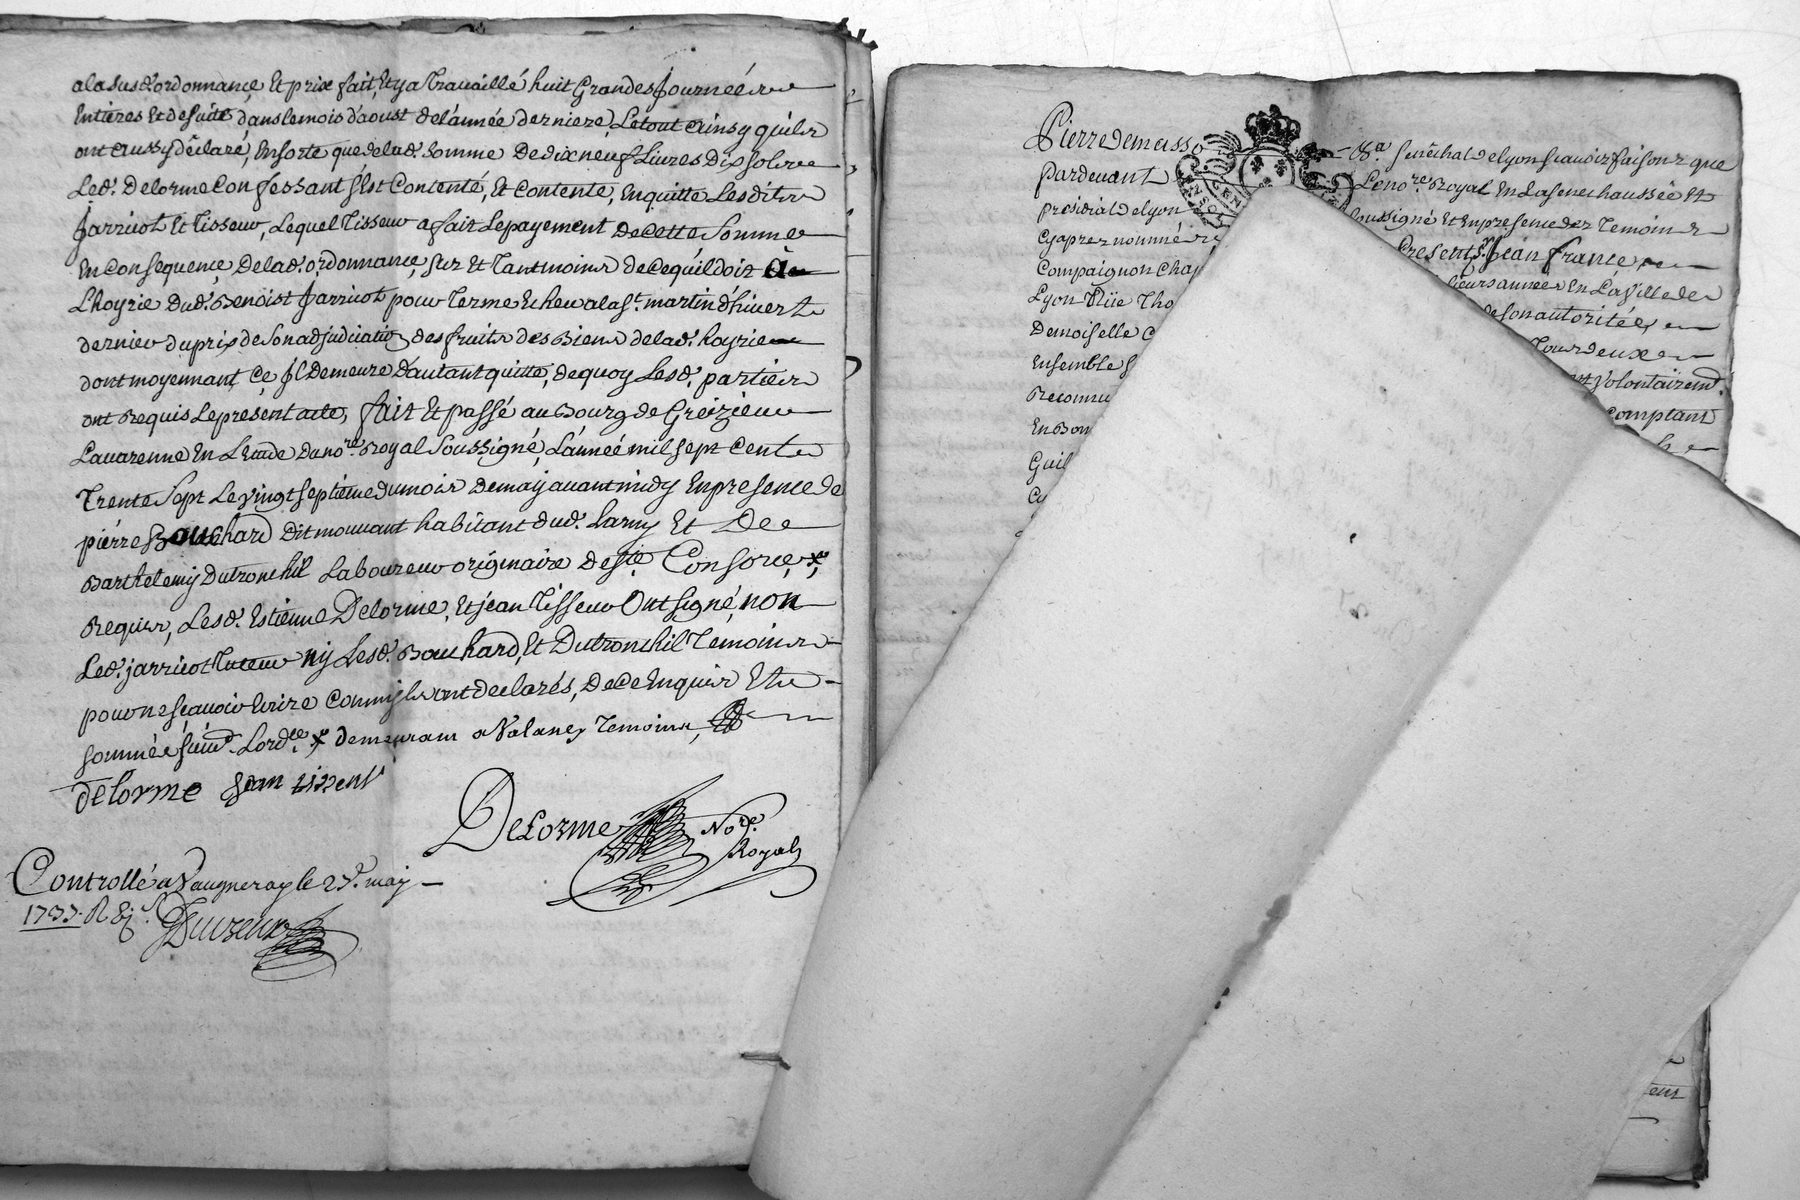 a la susd. ordonnance, Et prix fait, Et y a travaillé huit Grandes Journées
Entieres Et de suite dans le mois d'aoust de l'année derniere, Le tout Ainsy quils
ont aussy déclaré, En sorte que de lad. somme De dix neuf Livres dix sols
Led. Delorme Confessant s'Est Contenté, Et Contente, En quitte Lesdits
Jarricot Et Tisseur, Lequel Tisseur a fait Le payement De Cette Somme
En Consequence De lad. ordonnance, sur Et Tantmoins de Ce qu'il doit à
L'hoyrie Dud. Benoist Jarricot pour Terme Echeu a la st. martin d'hivert
dernier du prix de Son adjudication des fruits des Biens de lad. hoyrie
dont moyennant Ce Jl Demeure D'autant quitte, de quoy Lesd. parties
ont Requis Le present acte, fait Et passé au Bourg de Greizieu
La varenne En L'Etude du nore. Royal Soussigné, L'année mil sept Cent
Trente Sept Le vingt septieme du mois De may avant midy En presence de
pierre Bouchard Dit mouvant habitant dud. Larny Et De
Barthelemy Dutronchil Laboureur originaire de ste Consorce, x
Requis, Lesd. Estienne Delorme, Et jean Tisseur Ont signé, non
Led. jarricot Tuteur ny Lesd. Bouchard, Et Dutronchil Temoins
pour ne sçavoir Ecrire Comm'ils ont declarés, De Ce Enquis Et
sommés suivt. Lordce. x demeurant a Valaney Temoins,
delorme Jean tisseur
DeLorme Nore.
Royal
Controllé a Vaugneray le 27e. may
1737. R
Pierre de masso
senêchal de Lyon sçavoir faisons que
Pardevant Le nore. Royal En La senechaussée Et
presidial de Lyon soussigné Et En presence des Temoins
Cy apres nommés Presents Sr Jean france
Compaignon Cha années En La Ville de
Lyon Rüe Tho de son autorité
Demoiselle Tous deux
Ensemble Volontairemt.
Reconnu Comptant
En Bon
Guil
Cy